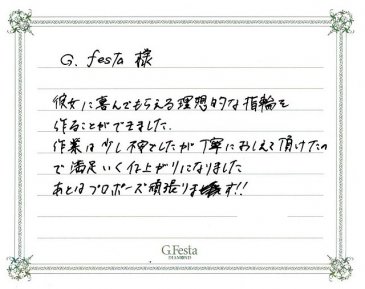 G. festa 様
彼女に喜んでもらえる理想的な指輪を
作ることができました.
作業は少し不安でしたが丁寧におしえて頂けたの
で満足いく仕上がりになりました
あとはプロポーズ頑張ります!!
G.Festa
DIAMOND